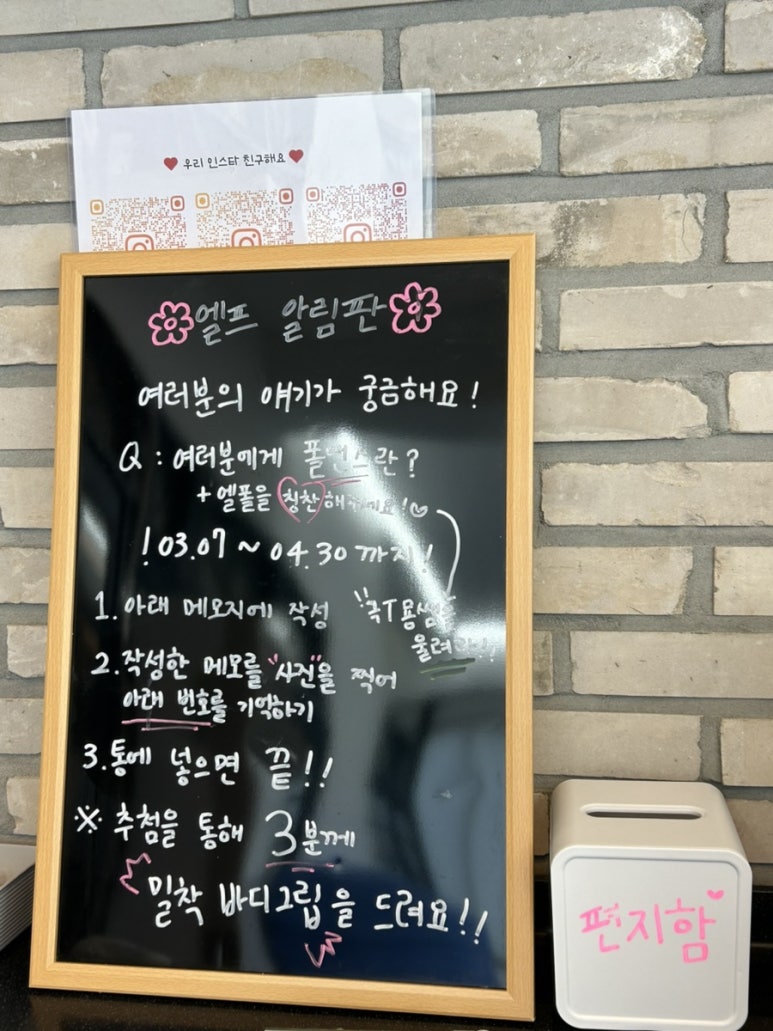 ♥ 우리 인스타 친구해요 ♥
엘프 알림판
여러분의 얘기가 궁금해요!
Q : 여러분에게 폴댄스란?
+ 엘폴을 칭찬해주세요!♡
! 03.07 ~ 04.30 까지!
1. 아래 메모지에 작성
울려라!!
2. 작성한 메모를 "사진"을 찍어
아래 번호를 기억하기
3. 통에 넣으면 끝!!
※ 추첨을 통해 3분께
밀착 바디그립을 드려요!!
편지함